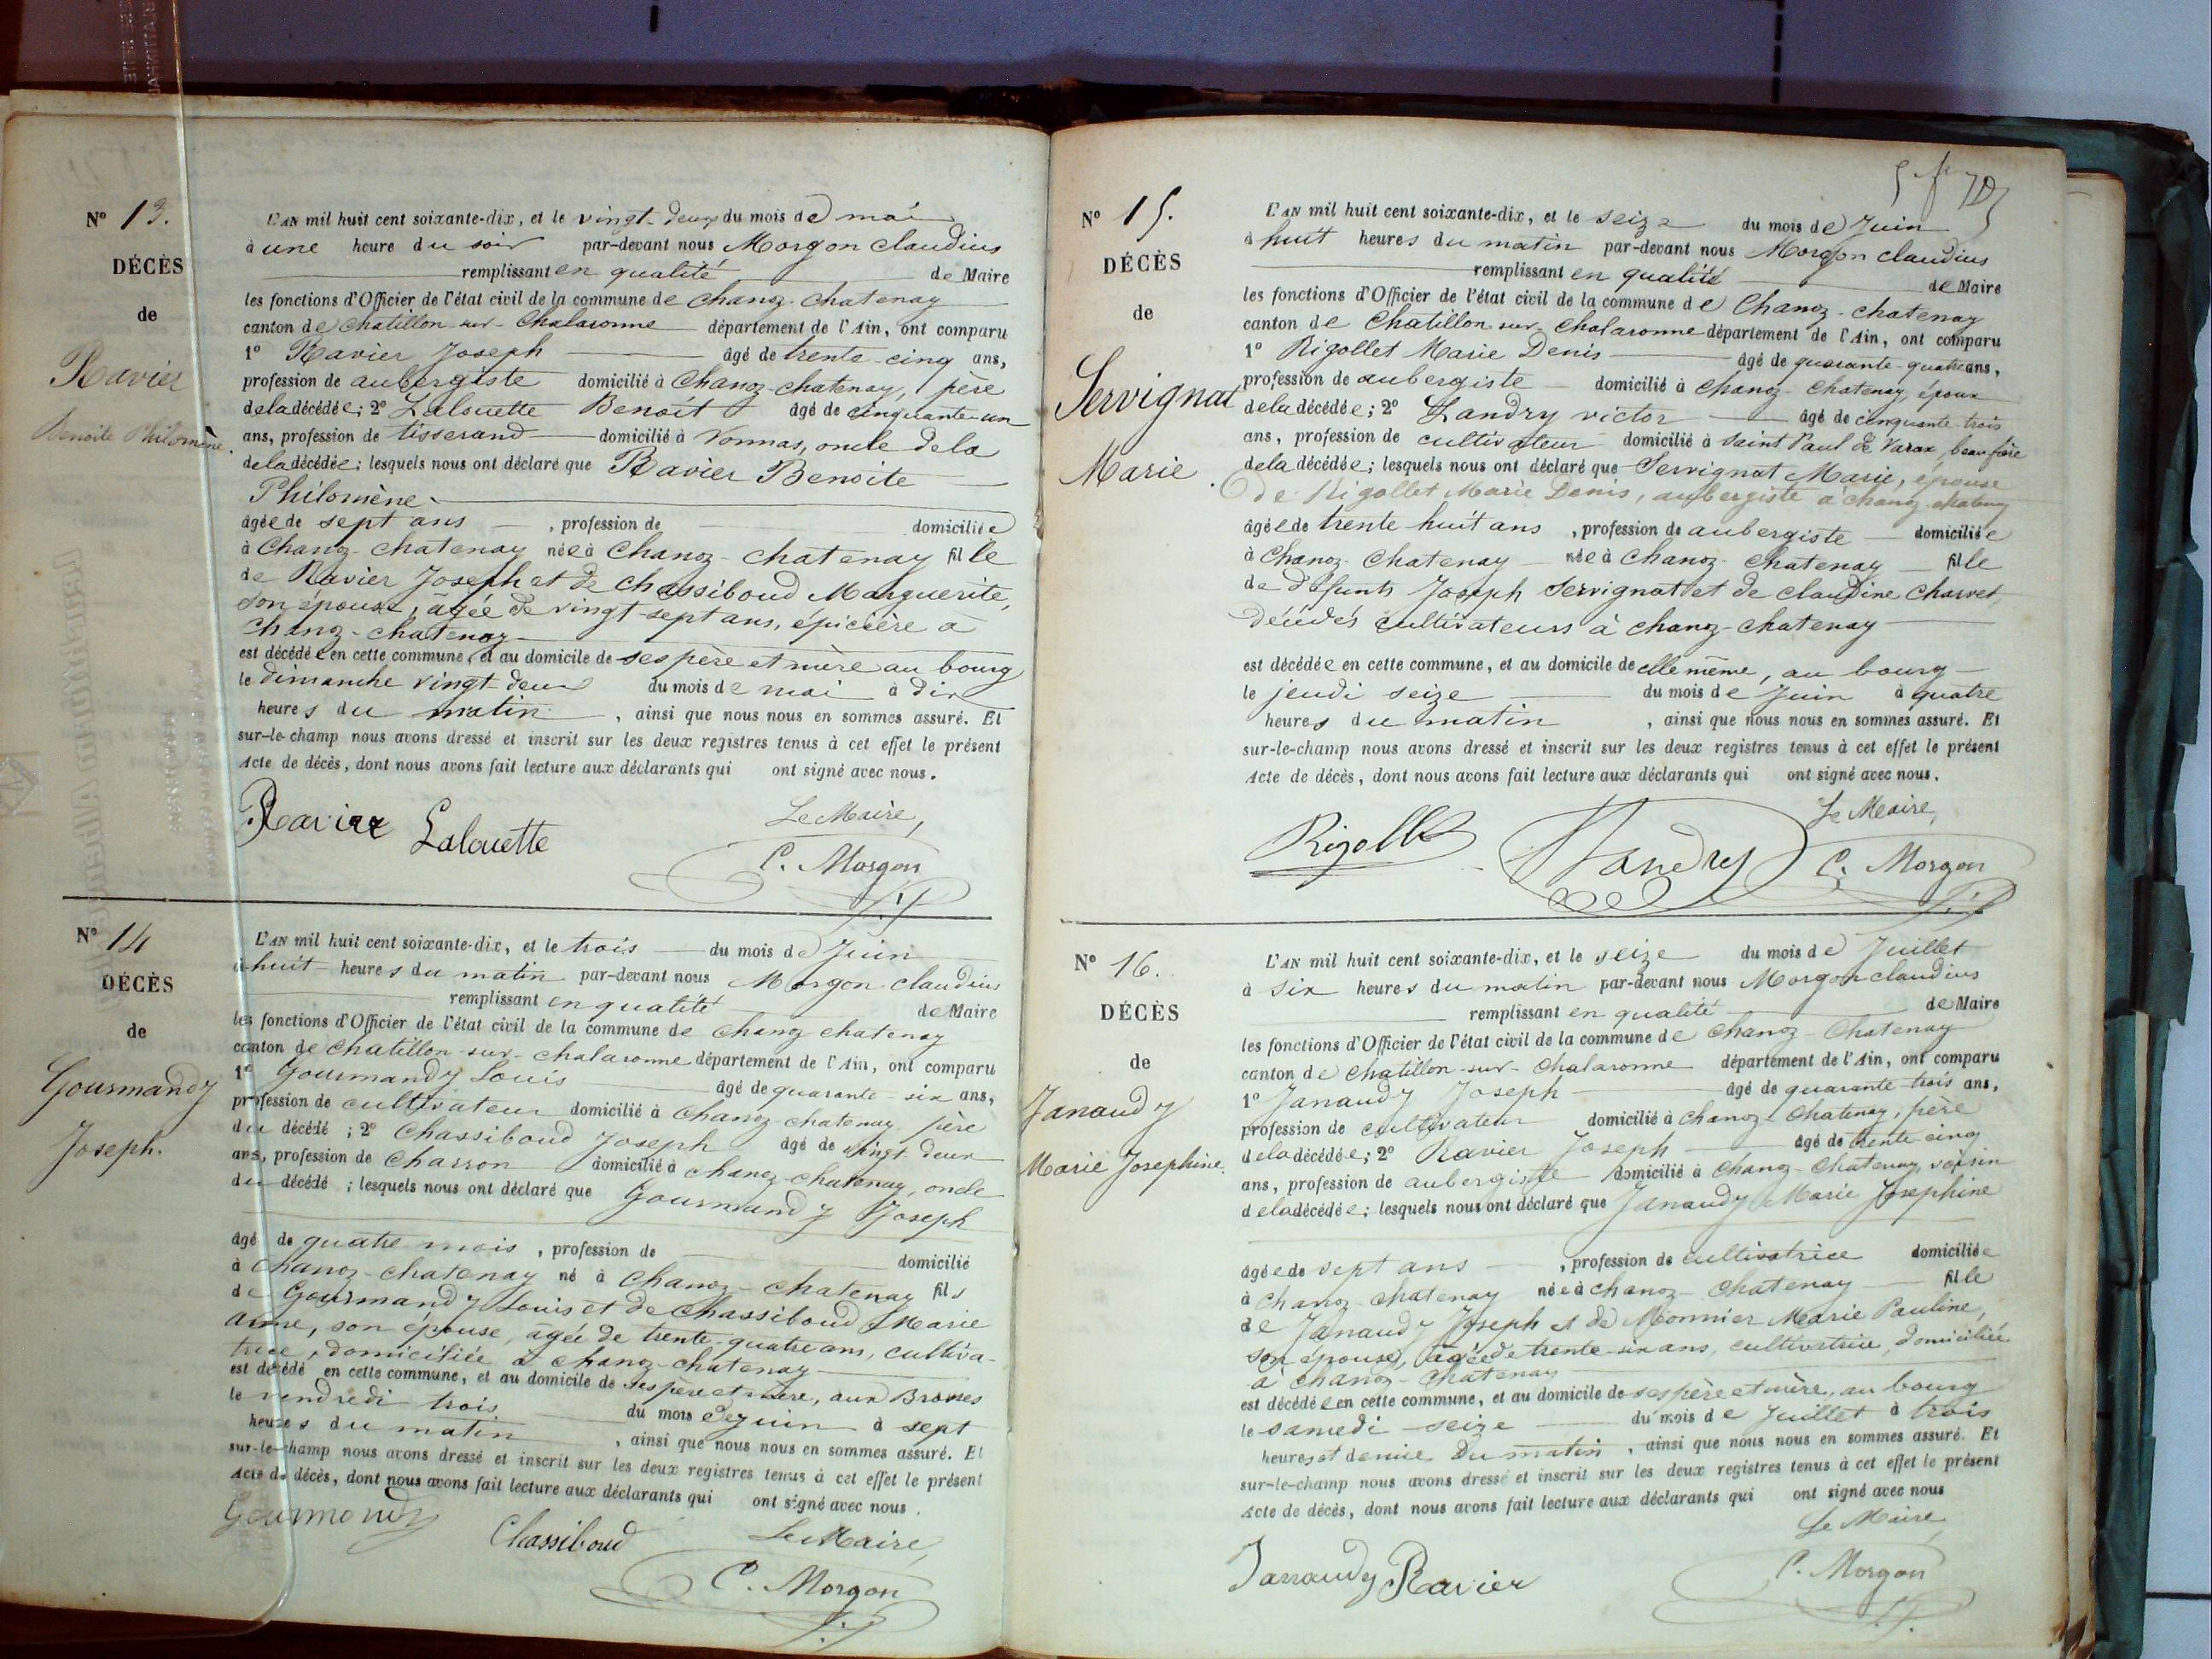 Nº 13.
DÉCÈS
de
Ravier
Benoite Philomène.
L'AN mil huit cent soixante-dix, et le vingt-deux du mois de mai
à une heure du soir par-devant nous Morgon Claudius
remplissant en qualité de Maire
les fonctions d'Officier de l'état civil de la commune de Chanoz-Chatenay
canton de Chatillon-sur-Chalaronne département de l'Ain, ont comparu
1º Ravier Joseph âgé de trente-cinq ans,
profession de aubergiste domicilié à Chanoz-chatenay, père
de la décédée; 2º Lalouette Benoît âgé de cinquante-un
ans, profession de tisserand domicilié à Vonnas, oncle de la
de la décédée; lesquels nous ont déclaré que Ravier Benoite
Philomène
âgée de sept ans, profession de domiciliée
à Chanoz-chatenay née à Chanoz-chatenay fille
de Ravier Joseph et de Chassiboud Marguerite,
son épouse, âgée de vingt-sept ans, épicière à
Chanoz-chatenay
est décédée en cette commune, et au domicile de ses père et mère au bourg
le dimanche vingt-deux du mois de mai à dix
heures du matin, ainsi que nous nous en sommes assuré. Et
sur-le-champ nous avons dressé et inscrit sur les deux registres tenus à cet effet le présent
Acte de décès, dont nous avons fait lecture aux déclarants qui ont signé avec nous.
Ravier Lalouette
Le Maire,
C. Morgon
Nº 14
DÉCÈS
de
Gourmandy
Joseph.
L'AN mil huit cent soixante-dix, et le trois du mois de Juin
à huit heures du matin par-devant nous Morgon Claudius
remplissant en qualité de Maire
les fonctions d'Officier de l'état civil de la commune de Chanoz chatenay
canton de Chatillon-sur-chalaronne département de l'Ain, ont comparu
1º Gourmandy Louis âgé de quarante-six ans,
profession de cultivateur domicilié à Chanoz-chatenay père
du décédé; 2º Chassiboud Joseph âgé de vingt deux
ans, profession de Charron domicilié à Chanoz-chatenay, oncle
du décédé; lesquels nous ont déclaré que Gourmandy Joseph
âgé de quatre mois, profession de domicilié
à Chanoz-chatenay né à Chanoz-chatenay fils
de Gourmandy Louis et de Chassiboud Marie
Anne, son épouse, âgée de trente-quatre ans, cultiva-
trice, domiciliée à Chanoz-chatenay
est décédé en cette commune, et au domicile de ses père et mère, aux Brosses
le vendredi trois du mois de juin à sept
heures du matin, ainsi que nous nous en sommes assuré. Et
sur-le-champ nous avons dressé et inscrit sur les deux registres tenus à cet effet le présent
Acte de décès, dont nous avons fait lecture aux déclarants qui ont signé avec nous.
Gourmondy Chassiboud
Le Maire,
C. Morgon
Nº 15.
DÉCÈS
de
Servignat
Marie.
L'AN mil huit cent soixante-dix, et le seize du mois de Juin
à huit heures du matin par-devant nous Morgon Claudius
remplissant en qualité de Maire
les fonctions d'Officier de l'état civil de la commune de Chanoz-chatenay
canton de Chatillon-sur-Chalaronne département de l'Ain, ont comparu
1º Rigollet Marie Denis âgé de quarante-quatre ans,
profession de aubergiste domicilié à Chanoz-Chatenay, époux
de la décédée; 2º Landry victor âgé de cinquante-trois
ans, profession de cultivateur domicilié à saint Paul de Varax, beau frère
de la décédée; lesquels nous ont déclaré que Servignat Marie, épouse
de Rigollet Marie Denis, aubergiste à chanoz chatenay
âgée de trente-huit ans, profession de aubergiste domiciliée
à Chanoz-Chatenay née à Chanoz-Chatenay fille
de défunts Joseph Servignat et de Claudine Charvet,
décédés cultivateurs à chanoz-chatenay
est décédée en cette commune, et au domicile de elle même, au bourg
le jeudi seize du mois de Juin à quatre
heures du matin, ainsi que nous nous en sommes assuré. Et
sur-le-champ nous avons dressé et inscrit sur les deux registres tenus à cet effet le présent
Acte de décès, dont nous avons fait lecture aux déclarants qui ont signé avec nous.
Le Maire,
Rigollet Landry C. Morgon
Nº 16.
DÉCÈS
de
Janaudy
Marie Josephine.
L'AN mil huit cent soixante-dix, et le seize du mois de Juillet
à six heures du matin par-devant nous Morgon Claudius
remplissant en qualité de Maire
les fonctions d'Officier de l'état civil de la commune de Chanoz-Chatenay
canton de Chatillon-sur-Chalaronne département de l'Ain, ont comparu
1º Janaudy Joseph âgé de quarante-trois ans,
profession de cultivateur domicilié à Chanoz-Chatenay, père
de la décédée; 2º Ravier Joseph âgé de trente-cinq
ans, profession de aubergiste domicilié à Chanoz-Chatenay voisin
de la décédée; lesquels nous ont déclaré que Janaudy Marie Josephine
âgée de sept ans, profession de cultivatrice domiciliée
à Chanoz-chatenay née à chanoz-Chatenay fille
de Janaudy Joseph et de Monnier Marie Pauline,
son épouse, âgée de trente-six ans, cultivatrice, domiciliée
à Chanoz-Chatenay
est décédée en cette commune, et au domicile de ses père et mère, au bourg
le samedi seize du mois de Juillet à trois
heures et demie du matin, ainsi que nous nous en sommes assuré. Et
sur-le-champ nous avons dressé et inscrit sur les deux registres tenus à cet effet le présent
Acte de décès, dont nous avons fait lecture aux déclarants qui ont signé avec nous
Le Maire,
Janaudy Ravier
C. Morgon